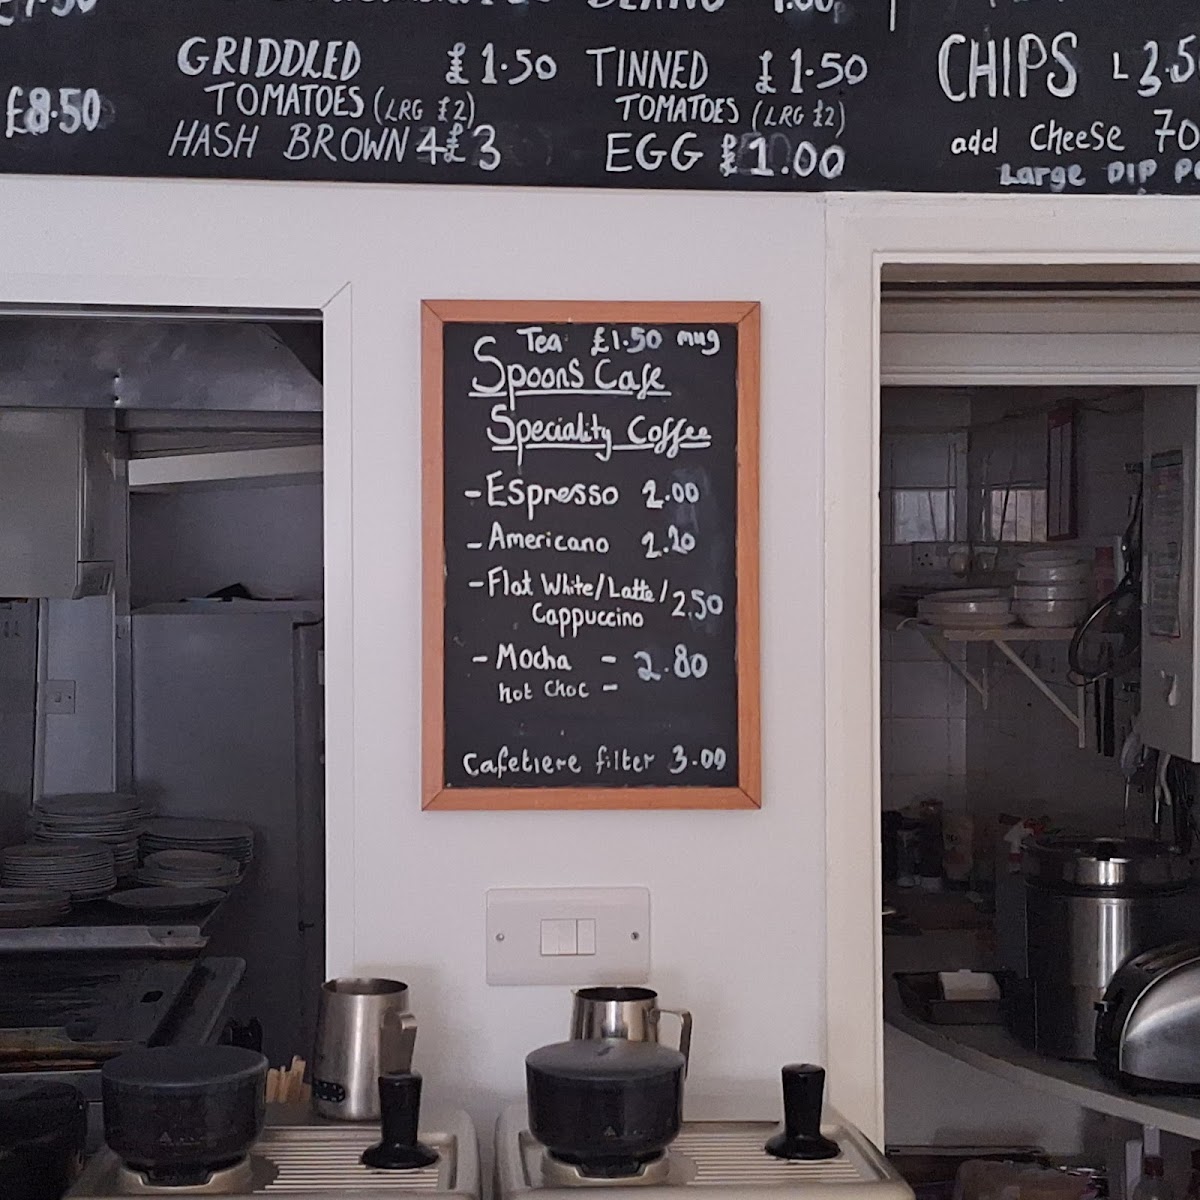 GRIDDLED £1.50 TINNED £1.50 CHIPS L 3.5
TOMATOES (LRG £2) TOMATOES (LRG £2)
£8.50
HASH BROWN 4 £3 EGG £1.00 add cheese 70
Large DIP
Tea £1.50 mug
Spoons Cafe
Speciality Coffee
- Espresso 2.00
- Americano 2.20
- Flat White/Latte/
Cappuccino 2.50
- Mocha - 2.80
hot choc -
Cafetiere filter 3.00